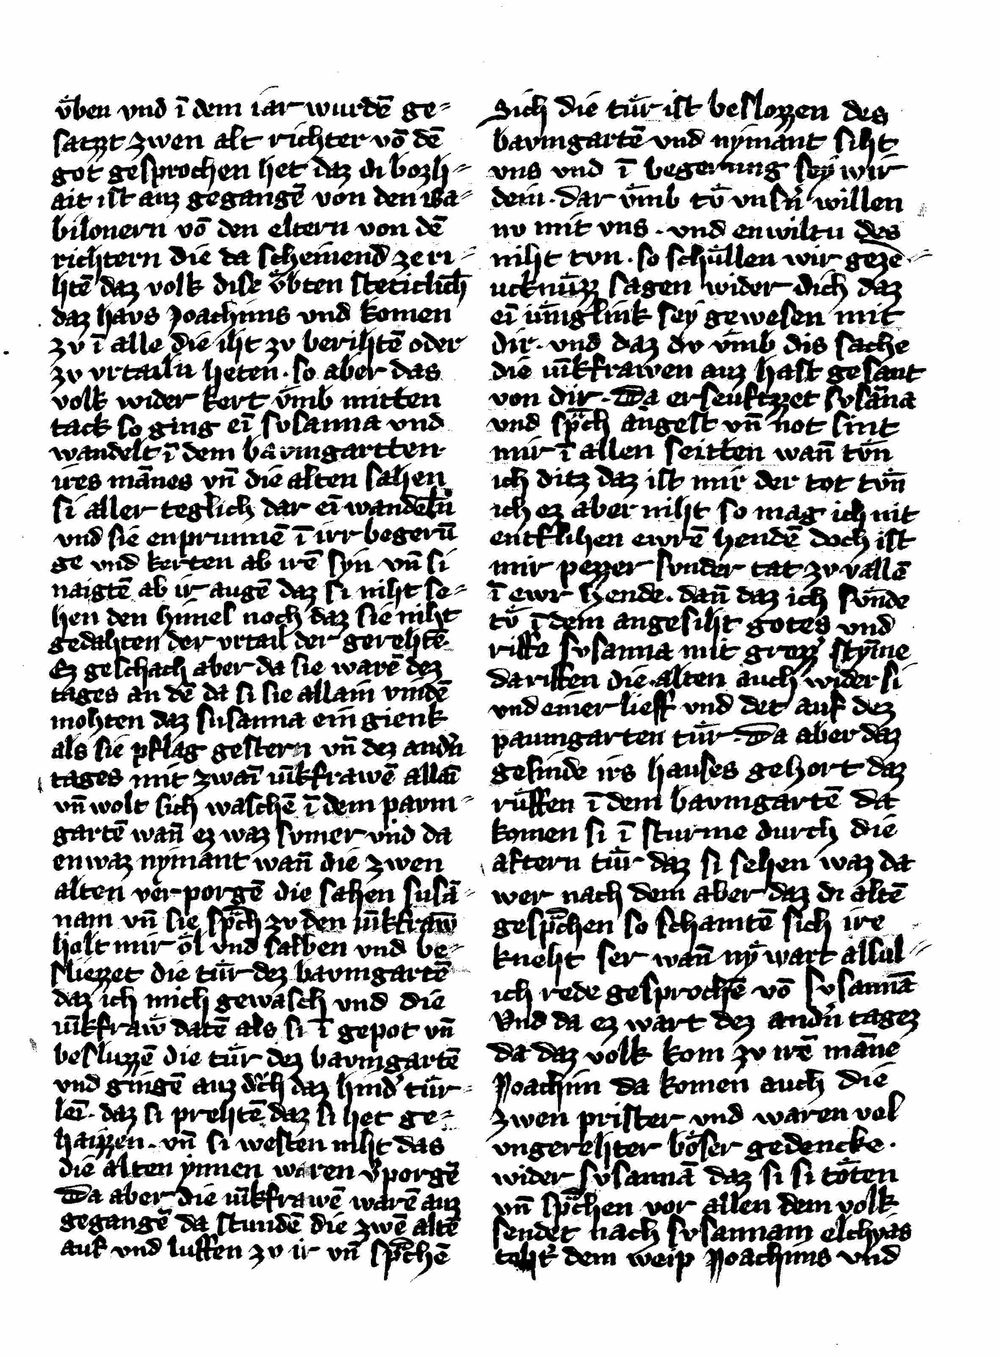 v̈ben vnd ī dem iar wurdē ge⸗
satzzt zwen alt richter vō dē
got gesprochen het daz di bozh⸗
ait ist auz gegangē von den Ba⸗
bilonern vō den eltern von dē
richtern die da scheinend ze ri⸗
htē daz volk dise v̈bten steticlich
daz haus Joachims vnd komen
zv ī alle die iht zv berihtē oder
zv vrtailn heten · so aber das
volk wider kert vmb mitten
tack so ging eī svsanna vnd
wandelt ī dem bavmgartten
ires mānes vn̄ die alten sahen
si aller teglich dar eī wandeln
vnd sie enprunnē ī irr begerū
ge vnd kerten ab irē syn vn̄ si
naigtē ab ir augē daz si niht se⸗
hen den himel noch daz sie niht
gedahten der vrtail der gerehtē
Ez geschach aber da sie warē dez
tages an dē da si sie allain vindē
mohten daz susanna ein gienk
als sie pflag gestern vn̄ dez andn̄
tages mit zwaī iūkfrawē allaī
vn̄ wolt sich waschē ī dem pavm⸗
gartē wan̄ ez waz svmer vnd da
enwaz nymant wan̄ die zwen
alten verporgē die sahen susā⸗
nam vn̄ sie sp̄ch zv den iūkfraw̄
holt mir o̎l vnd salben vnd be⸗
sliezzet die tu̎r dez bavmgartē
daz ich mich gewasch vnd die
iūkfraw̄ datē als si ī gepot vn̄
besluzzē die tu̎r dez bavmgartē
vnd gingē auz dch̄ daz hind' tu̎r⸗
leī · daz si prehtē daz si het ge⸗
haizzen · vn̄ si westen niht das
die alten ynnen waren v'porgē
Da aber die iūkfrawē warē auz
gegangē da stundē die zwē altē
auf vnd luffen zv ir vn̄ sp̄chē
Sich die tu̎r ist beslozzen des
bavmgartē vnd nymant siht
vns vnd ī begerung sey wir
dein · dar vmb tv̎ vnsn̄ willen
nv mit vns · vnd enwiltu des
niht tvn · so schu̎llen wir geze⸗
ucknu̎zz sagen wider dich daz
eī iūnglink sey gewesen mit
dir · vnd daz dv vmb dis sache
die iūkfrawen auz hast gesant
von dir · Da erseuftzzet svsāna
vnd sp̄ch angest vn̄ not sint
mir ī allen seitten wan̄ tvn̄
ich ditz daz ist mir der tot tvn̄
ich ez aber niht so mag ich nit
entflihen ewrē hendē doch ist
mir pezzer svnder tat zv vallē
ī ewr hende · dan̄ daz ich svnde
tv̎ ī dem angesiht gotes vnd
riffe svsanna mit grozz' stȳme
da riffen die alten auch wider si
vnd einer lieff vnd det auf dez
paumgarten tu̎r · Da aber daz
gesinde irs hauses gehort daz
ru̎ffen ī dem bavmgartē da
komen si ī sturme durch die
aftern tu̎r daz si sehen waz da
wer nach dem aber daz di altē
gesp̄chen so schamtē sich ire
kneht ser wan̄ ny wart allul⸗
ich rede gesprochē vō svsannā
Vnd da ez wart dez andn̄ tagez
da daz volk kom zv irē māne
Joachim da komen auch die
zwen prister vnd waren vol
vngerehter bo̎ser gedencke ·
wider svsannā daz si si to̎ten
vn̄ sp̄chen vor allen dem volk
sendet nach svsannam elchyas
toht' dem weip Joachims vnd